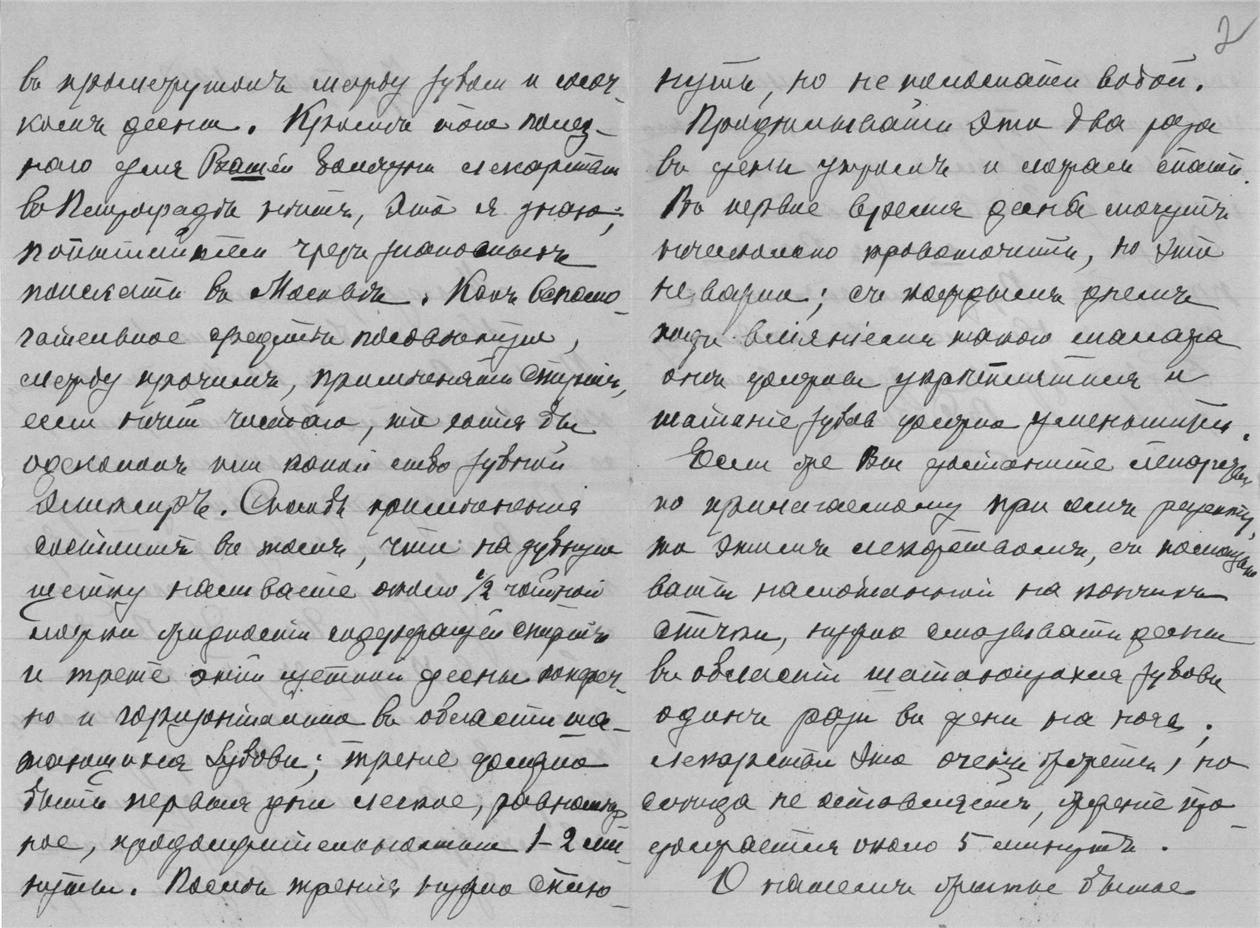 2
въ промежутокъ между зубом и соч-
комъ десны. Кромѣ того полез-
ного для Вашей болѣзни лекарства
въ Петроградѣ нѣтъ, это я знаю;
попытайтесь чрезъ знакомыхъ
поискать въ Москвѣ. Какъ вспомо-
гательное средство посовѣтую,
между прочимъ, примѣнять спиртъ,
если нѣтъ чистаго, то хотя бы
одеколонъ или какой либо зубной
эликсиръ. Способъ примѣненія
состоитъ въ томъ, что на зубную
щетку наливаете около 1/2 чайной
ложки жидкости содержащей спиртъ
и трете этой щеткой десны попереч-
но и горизонтально въ области ша-
тающихся зубовъ; треніе должно
быть первые дни легкое, равномѣр-
ное, продолжительностью 1-2 ми-
нуты. Послѣ тренія нужно сплю-
нуть, но не полоскать водой.
Продѣлывать это два раза
въ день утромъ и ложась спать.
Въ первое время десна могутъ
нѣсколько кровоточить, но это
не важно; съ каждымъ днемъ
подъ вліяніемъ такого массажа
онѣ должны укрѣпляться и
шатаніе зубов должно уменьшиться.
Если же Вы достанете лекарство
по прилагаемому при семъ рецепту,
то этимъ лекарствомъ, съ помощью
ваты намотанной на кончикъ
спички, нужно смазывать десны
въ области шатающихся зубовъ
одинъ разъ въ день на ночь;
лекарство это очень жжетъ, но
слѣда не оставляетъ, жженіе про-
должается около 5 минутъ.
О нашемъ житье бытье